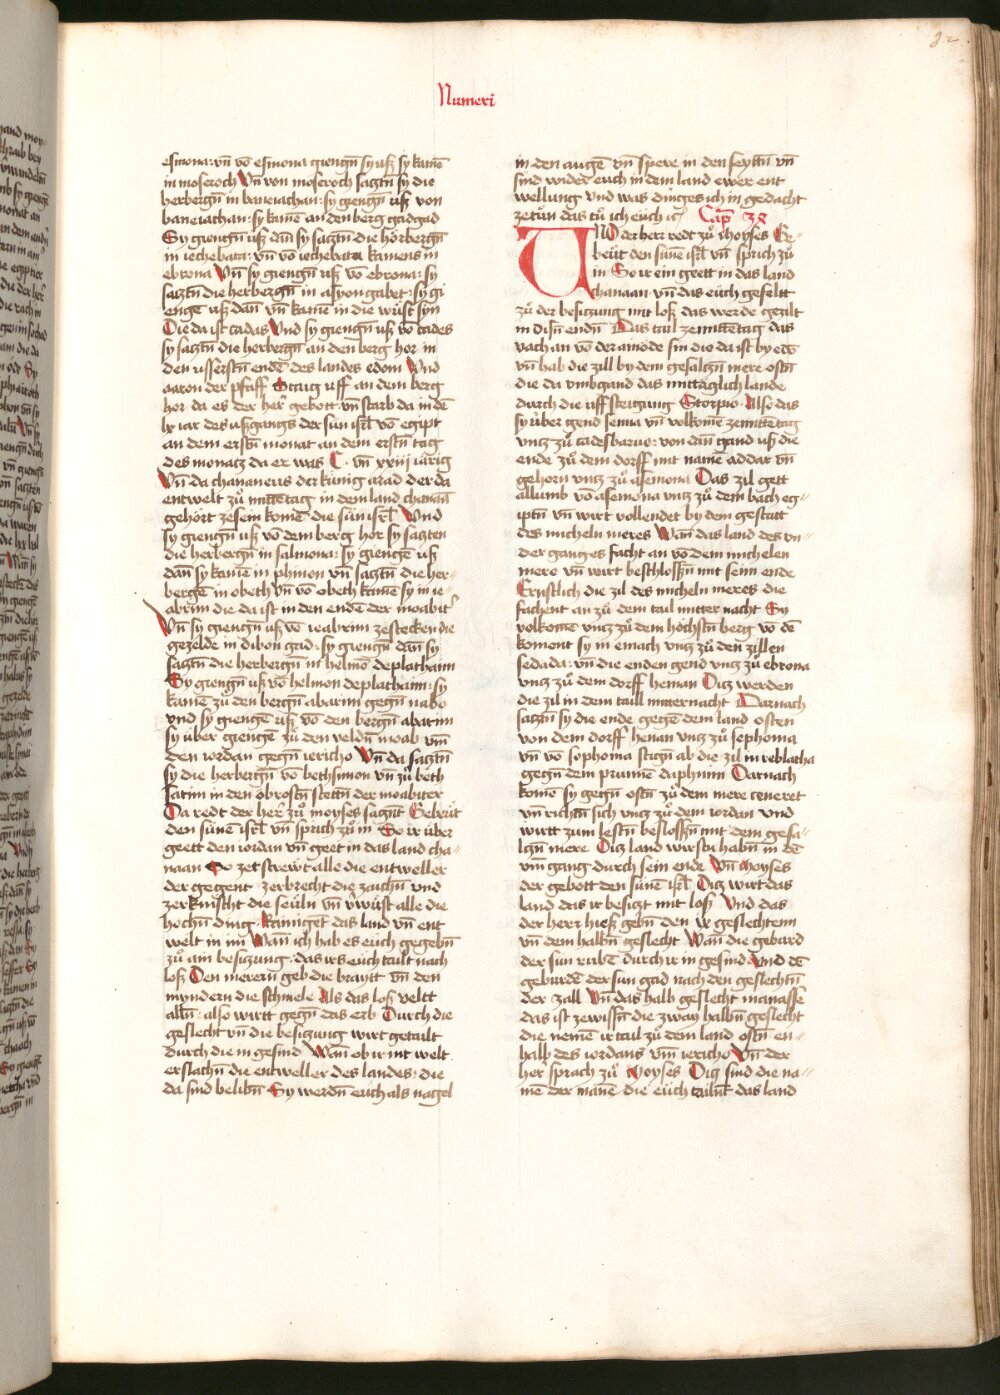 82
Numeri
esmona: vn̄ vō esmona giengn̄ sy uß sy kamē
in moseroch Vn̄ von moseroch saztn̄ sy die
herbergn̄ in baneiachan: sy giengn̄ uß von
baneiachan: sy kamē an den berg gadgad
Sy giengn̄ uß dan̄ sy saztn̄ die hörbergn̄
in iechebata: vn̄ vō iechebata kamens in
ebrona Vn̄ sy giengn̄ uß vō ebrona: sy
saztn̄ die herbergn̄ in asyongabet: sy gi
engē uß dan̄ vn̄ kamē in die wüst syn
Die da ist cadas Vnd sy giengn̄ uß vō cades
sy saztn̄ die herbergn̄ an den berg hor in
den ussersten̄ endē des landes edom Vnd
aaron der pfaff Staig uff an dem berg
hor da es der her gebott vn̄ starb da in dē
lx iar des ußgangs der sun isr̄l vō egipt
an dem erstn̄ monat an dem erstn̄ tag
des monatz da er was C. vn̄ xxiij iärig
Vn̄ da chananeus der künig arad der da
entwelt zů mittētag in dem land chanan̄
gehört ze sein komē die sün isr̄l Vnd
sy giengn̄ uß vō dem berg hor sy sazten
die herbergn̄ in salmona: sy giengē uß
dan̄ sy kamē in phinon vn̄ saztn̄ die her-
bergē in obeth vn̄ vō obeth kamē sy in ie
abrim die da ist in den endē der moabit
Vn̄ sy giengn̄ uß vō ieabrim ze stecken die
gezelde in dibon gad: sy giengn̄ dan̄ sy
saztn̄ die herbergn̄ in helmō deplathaim
Sy giengn̄ uß vō helmon deplathaim: sy
kamē zů den bergn̄ abarim gegn̄ nabo
vnd sy giengē uß vō den bergn̄ abarim
sy über giengē zů den veldn̄ moab vm̄
den iordan gegn̄ iericho Vn̄ da saztn̄
sy die herbergn̄ vō bethsimon vn̄ zů beth
satim in den obrostn̄ stettn̄ der moabiter
Da redt der her zů moyses sagnt Gebeüt
den sünē isr̄l vn̄ sprich zů in So ir über
geett den iordan vn̄ geet in das land cha-
naan So zerstrewt alle die entweller
der gegent zerbrecht die zaichn̄ vnd
zerknischt die seüln̄ vn̄ v̄wüst alle die
hochn̄ ding: Rainiget das land vn̄ ent
welt in im Wan̄ ich hab es euch gegebn̄
zů ain besizung: das irs euch tailt nach
loß Den merern geb die braytt vn̄ den
myndern die schmele Als das loß veltt
alln̄: also wirtt gegn̄ das erb Durch die
geslecht vn̄ die besizung wirt getailt
durch die in gesind Wan̄ ob ir nit welt
erslachn̄ die entweller des landes: die
da sind belibn̄ Sy werdn̄ euch als nagel
in den augē vn̄ spere in den seyttn̄ vn̄
sind wider euch in dem land ewer ent
wellung vnd was dinges ich in gedacht
zetůn das tů ich euch
UND der herr redt zů Moyses Ge-
beüt den sünē isr̄l vn̄ sprich zů
in So ir ein geett in das land
chanaan vn̄ das euch gefeltt
zů der besizung mit loß das werde gezilt
in disn̄ endn̄ Das tail ze mittētag das
vach an vō der ainöde sin die da ist by edō
vn̄ hab die zill by dem gesalczn̄ mere ostn̄
die da vmbgand das mittäglich lande
durch die uff steigung Scorpio Also das
sy über gend senna vn̄ volkomē ze mittētag
vncz zů cadesbarne: von dan̄ gand uß die
ende zů dem dorff mit namē addar vn̄
gehorn vncz zů asemona Das zil gett
allumb vō asemona vncz zů dem bach eg-
iptn̄ vn̄ wirt vollendet by dem gestatt
des micheln meres Wan̄ das land des vn-
der ganges facht an vō dem michelen
mere vn̄ wirt beschlossn̄ mit seim ende
Ernstlich die zil des micheln meres die
fachent an zů dem tail mitter nacht Sy
volkomē vncz zů dem höchstn̄ berg vō dē
koment sy in emach vncz zů den zillen
sedada: vn̄ die enden gend vncz zů ebrona
vncz zů dem dorff henan Dicz werden
die zil in dem taill mitternacht Darnach
saztn̄ sy die ende gegē dem land osten
von dem dorff henan vncz zů sephoma
vn̄ vō sophoma stign̄ ab die zil in reblatha
gegn̄ dem prunnē daphnim Darnach
komē sy gegn̄ ostn̄ zů dem mere ceneret
vn̄ richtn̄ sich vncz zů dem iordan vnd
wirtt zum lestn̄ beslossn̄ mit dem gesa-
lczn̄ mere Dicz land wirstu habn̄ in dē
vm̄gang durch sein ende Vn̄ Moyses
der gebott den sünē isr̄l Dicz wirt das
land das ir besizt mit loß Vnd das
der herr hieß gebn̄ den ix geslechtenn
vn̄ dem halbn̄ geslecht Wan̄ die geburd
der sun rubē durch ir in gesind Vnd dē
geburdē der sun gad nach den geslechtn̄
der zall Vn̄ das halb geslecht manasse
das ist zewissn̄ die zway halbn̄ geslecht
die nemē ir tail zů dem land ostn̄ en-
halb des iordans vm̄ iericho Vn̄ der
her sprach zů Moyses Dicz sind die na-
mē der manē die euch tailnt das land